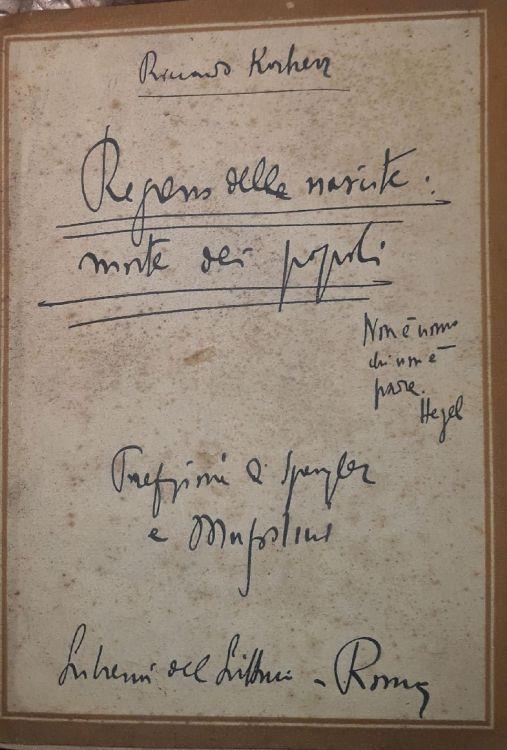 Riccardo Korherr
Regresso delle nascite:
morte dei popoli
Non è uomo
chi non è
padre.
Hegel
Prefazioni di Spengler
e Mussolini
Libreria del Littorio - Roma